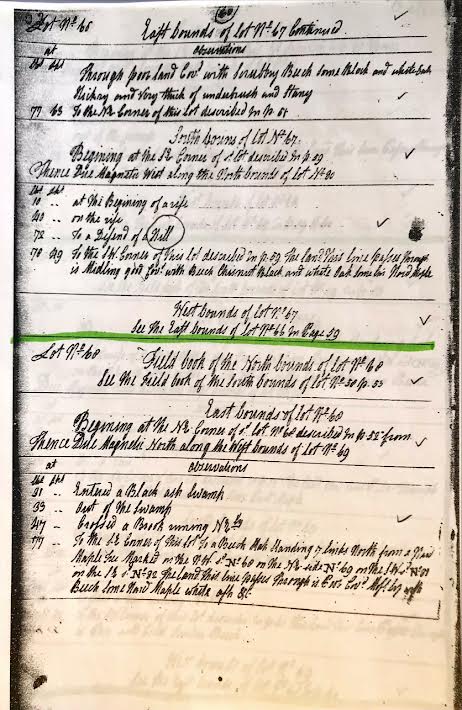 (60)
Lot No. 66 East bounds of Lot No. 67 Continued
at observations
Chs Lks
Through poor land Cov.d with Scrubby Beech some Black and white Oak
Hickory and Very thick of underbrush and Stony
77 63 To the NE Corner of this Lot described in p. 51
South bouns of Lot No. 67
Begining at the SE Corner of s.d Lot described in p. 59
Thence Due Magnetic West along the North bounds of Lot No. 80
Chs Lks
10 .. at The Begining of a rise
40 .. on the rise
72 .. To a Desend of a Hill
78 49 To the SW Corner of This Lot described in p. 59 The land This line passes Through
is Midling good Cov.d with Beech Chesnut Black and white Oak some Maple
West bounds of Lot No. 67
See the East bounds of Lot No. 66 in Page 59
Lot No. 68 Field book of the North bounds of Lot No. 68
See the Field book of the South bounds of Lot No. 58 p. 53
East bounds of Lot No. 68
Begining at the NE Corner of s.d Lot No. 68 described in p. 52 from
Thence Due Magnetic North along the West bounds of Lot No. 69
at observations
Chs Lks
31 .. Entered a Black ash Swamp
33 .. Out of the Swamp
47 .. Crossed a Brook runing NE
77 .. To the SE Corner of This Lot To a Beech Stake Standing 7 links North from a Hard
Maple Tree Marked on the NW s.d No. 68 on the NE side No. 69 on the SW s.d No. 81
on the SE s.d No. 82 The land This line passes Through is Cov.d with
Beech some Hard Maple white ash &c.